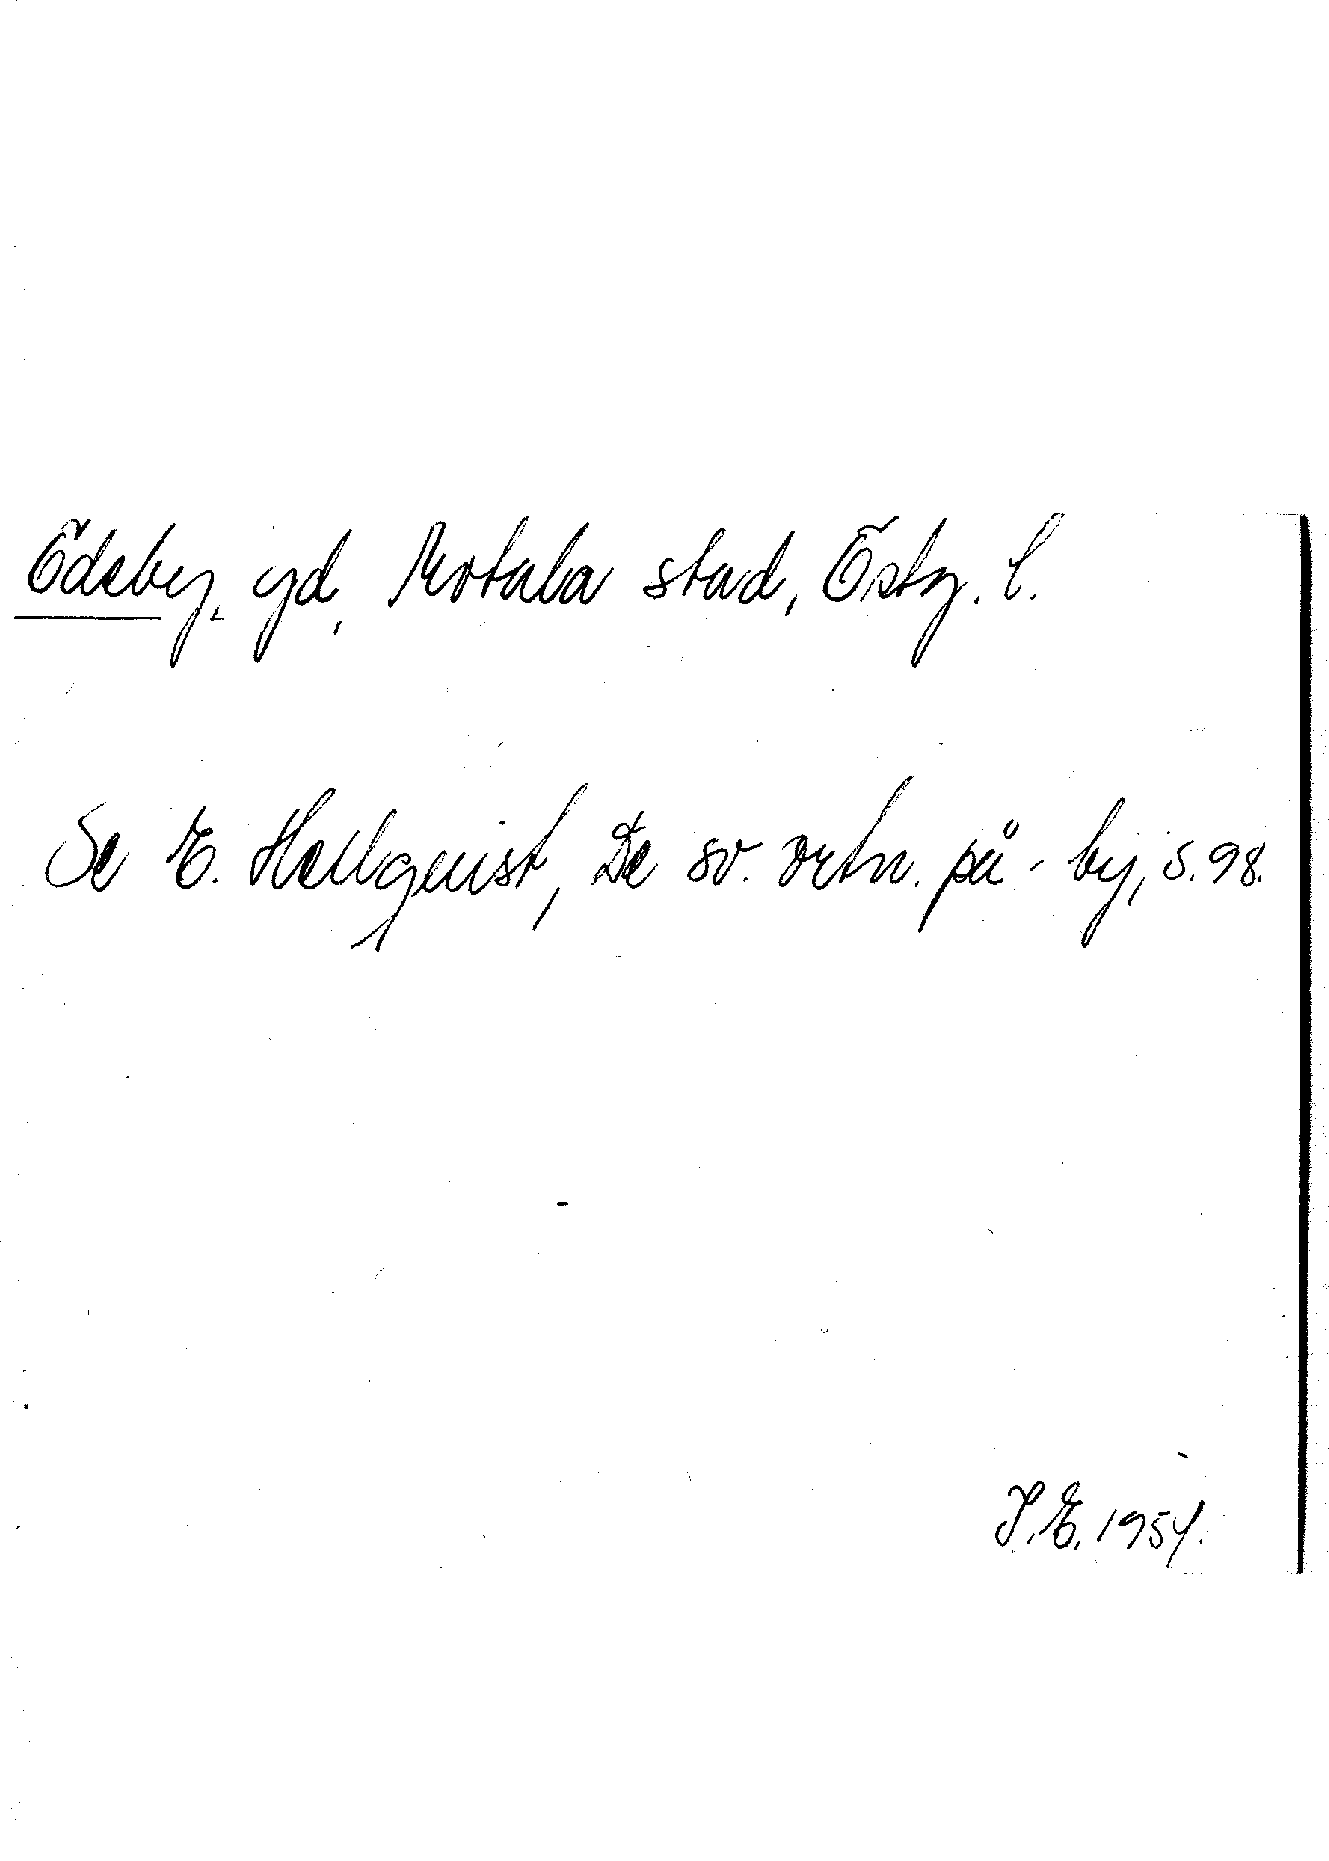 Ödeby, gd, Motala stad, Östg. l.
Se E. Hellquist, De sv. ortn. på -by, s. 98.
I. E. 1954.